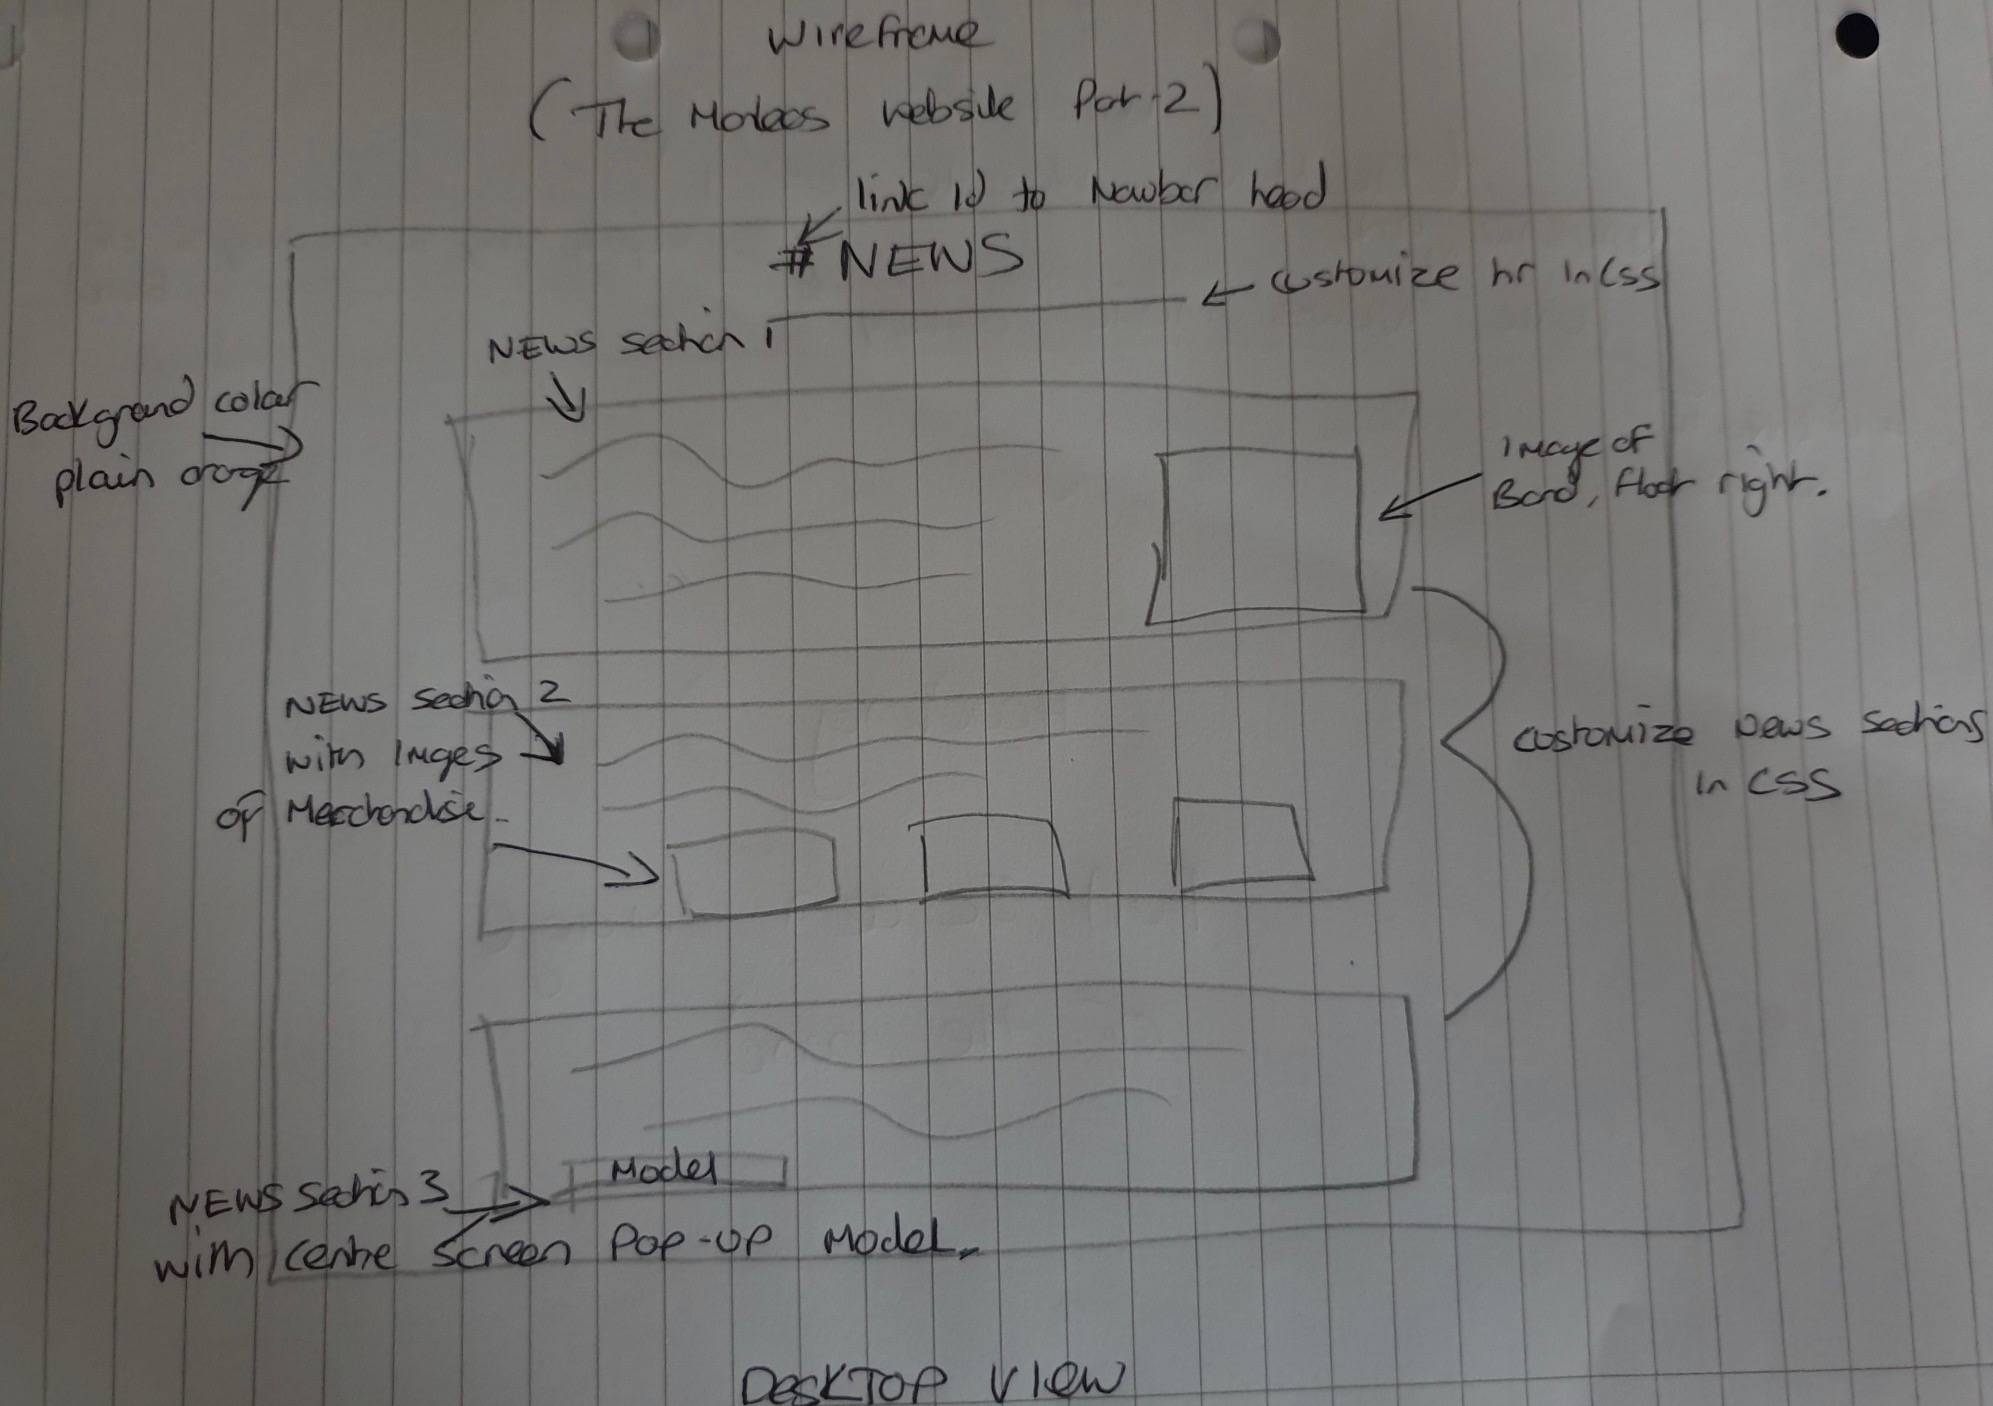 Wireframe
(The Monkees website Part 2)
link id to Navbar head
# NEWS
customize hr in CSS
NEWS section 1
Background colour
plain orange
Image of
Band, float right.
NEWS section 2
with Images
of Merchandise.
customize News sections
in CSS
Model
NEWS section 3
with centre screen POP-UP Model.
DESKTOP VIEW